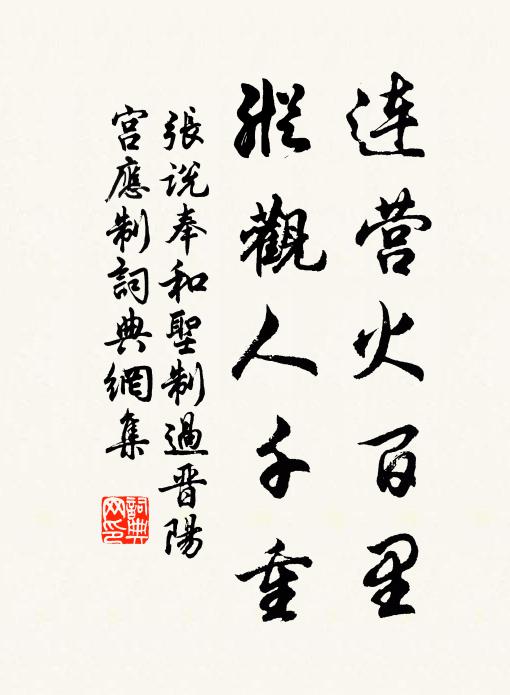 連营火百里
縱觀人千重
張说奉和聖制過晋陽
宫應制詞典網集
詞典
网印